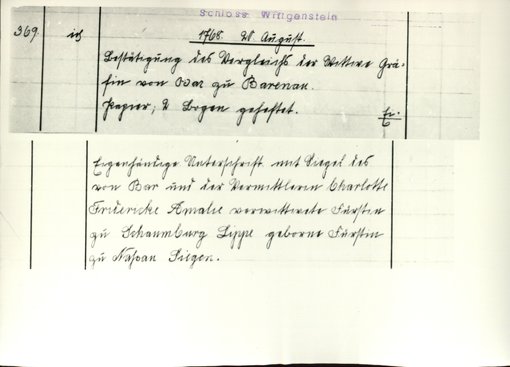 Schloss Wittgenstein
369. ich 1768. 21. August.
Bestätigung des Vergleichs der Wittwe Grä-
fin von Bar zu Barenau.
Papier, 2 Bogen geheftet.
Eigenhändige Unterschrift mit Siegel des
von Bar und der Vermittlerin Charlotte
Friedricke Amalie verwittwete Fürstin
zu Schaumburg Lippe geborne Fürstin
zu Nassau Siegen.